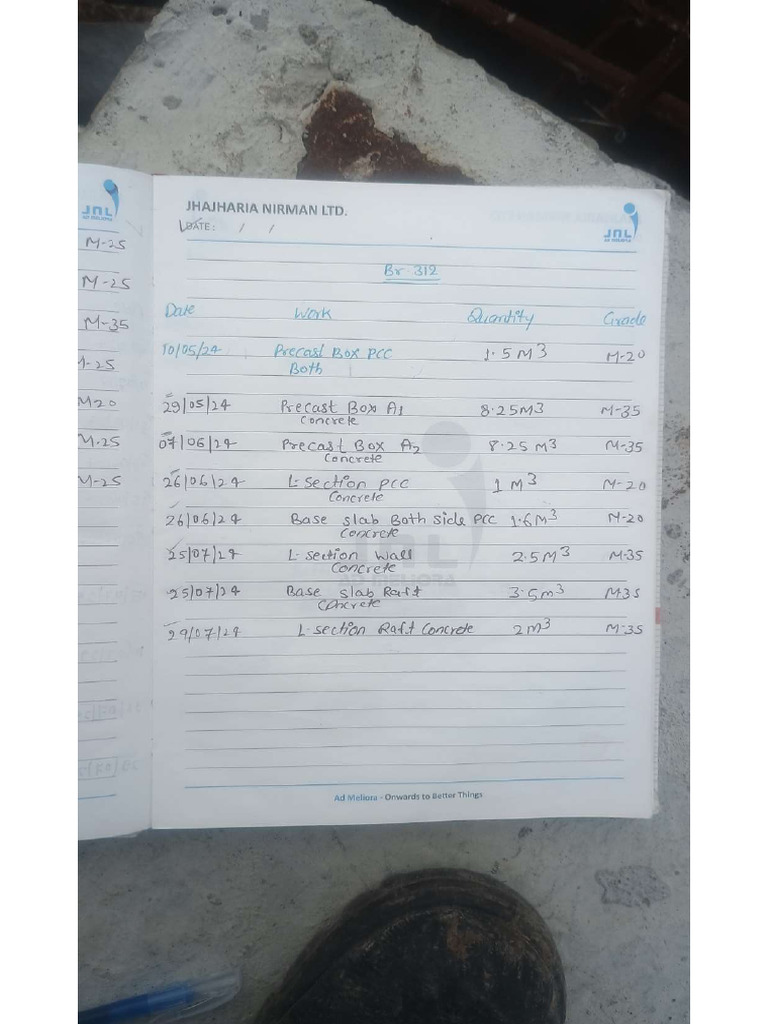 JNL
AD MELIORA
M-25
M-25
M-35
M-25
M20
M-25
M-25
JHAJHARIA NIRMAN LTD.
DATE : / /
JNL
AD MELIORA
Br-312
Date Work Quantity Grade
10/05/24 Precast Box PCC 1.5M3 M-20
Both
29/05/24 Precast Box A1 8.25M3 M-35
Concrete
07/06/24 Precast Box A2 8.25 M3 M-35
Concrete
26/06/24 L-Section PCC 1 M3 M-20
Concrete
26/06/24 Base slab Both side PCC 1.6M3 M-20
Concrete
25/07/24 L-section Wall 2.5M3 M-35
Concrete
25/07/24 Base slab Raft 3.5M3 M35
Concrete
29/07/24 L-section Raft Concrete 2M3 M-35
JNL
AD MELIORA
Ad Meliora - Onwards to Better Things